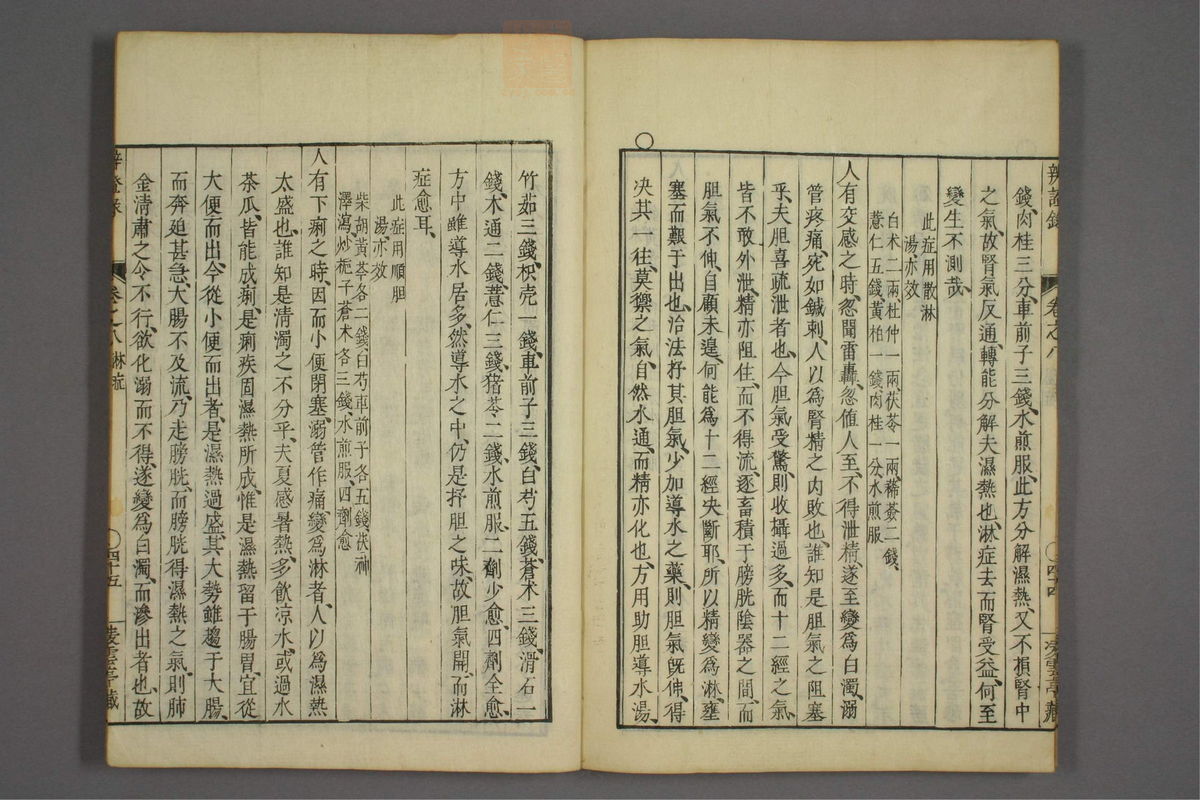 辨證錄 卷之八 四十四 凌雲亭藏
錢、肉桂三分、車前子三錢、水煎服、此方分解濕熱、又不損腎中
之氣、故腎氣反通、轉能分解夫濕熱也、淋症去而腎受益、何至
變生不測哉、
此症用散淋
湯亦效
白术二兩、杜仲一兩、茯苓一兩、豨薟二錢、
薏仁五錢、黃柏一錢、肉桂一分、水煎服
人有交感之時、忽聞雷轟、忽值人至、不得泄精、遂至變為白濁、溺
管疼痛、宛如鍼刺、人以為腎精之內敗也、誰知是胆氣之阻塞
乎、夫胆喜疏泄者也、今胆氣受驚、則收攝過多、而十二經之氣
皆不敢外泄、精亦阻住、而不得流、逐畜積于膀胱陰器之間、而
胆氣不伸、自顧未遑、何能為十二經决斷耶、所以精變為淋、壅
塞而艱于出也、治法抒其胆氣、少加導水之藥、則胆氣既伸、得
决其一往、莫禦之氣、自然水通、而精亦化也、方用助胆導水湯、
竹茹三錢、枳壳一錢、車前子三錢、白芍五錢、蒼术三錢、滑石一
錢、木通二錢、薏仁三錢、猪苓二錢、水煎服、二劑少愈、四劑全愈、
方中雖導水居多、然導水之中、仍是抒胆之味、故胆氣開、而淋
症愈耳、
此症用順胆
湯亦效
柴胡黃芩各二錢、白芍車前子各五錢、茯神
澤瀉、炒梔子蒼术各三錢、水煎服、四劑愈
人有下痢之時、因而小便閉塞、溺管作痛、變為淋者、人以為濕熱
太盛也、誰知是清濁之不分乎、夫夏感暑熱、多飲凉水、或過水
茶瓜、皆能成痢、是痢疾固濕熱所成、惟是濕熱留于腸胃、宜從
大便而出、今從小便而出者、是濕熱過盛、其大勢雖趨于大腸、
而奔廹甚急、大腸不及流、乃走膀胱、而膀胱得濕熱之氣、則肺
金清肅之令不行、欲化溺而不得、遂變為白濁、而滲出者也、故
辨證錄 卷之八 淋症 四十五 凌雲亭藏